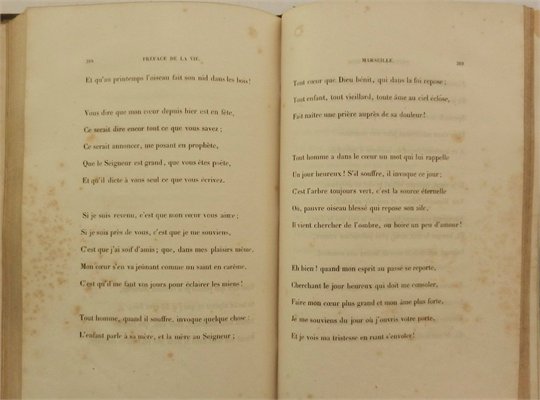 PRÉFACE DE LA VIE.
Et qu'au printemps l'oiseau fait son nid dans les bois!
Vous dire que mon cœur depuis hier est en fête,
Ce serait dire encor tout ce que vous savez;
Ce serait annoncer, me posant en prophète,
Que le Seigneur est grand, que vous êtes poète,
Et qu'il dicte à vous seul ce que vous écrivez.
Si je suis revenu, c'est que mon cœur vous aime;
Si je suis près de vous, c'est que je me souviens,
C'est que j'ai soif d'amis; que, dans mes plaisirs même,
Mon cœur s'en va jeûnant comme un saint en carême,
C'est qu'il me faut vos jours pour éclairer les miens!
Tout homme, quand il souffre, invoque quelque chose:
L'enfant parle à sa mère, et la mère au Seigneur;
MARSEILLE.
Tout cœur que Dieu bénit, qui dans la foi repose;
Tout enfant, tout vieillard, toute âme au ciel éclose,
Fait naître une prière auprès de sa douleur!
Tout homme a dans le cœur un mot qui lui rappelle
Un jour heureux! S'il souffre, il invoque ce jour;
C'est l'arbre toujours vert, c'est la source éternelle
Où, pauvre oiseau blessé qui repose son aile,
Il vient chercher de l'ombre, ou boire un peu d'amour!
Eh bien! quand mon esprit au passé se reporte,
Cherchant le jour heureux qui doit me consoler,
Faire mon cœur plus grand et mon âme plus forte,
Je me souviens du jour où j'ouvris votre porte,
Et je vois ma tristesse en riant s'envoler!